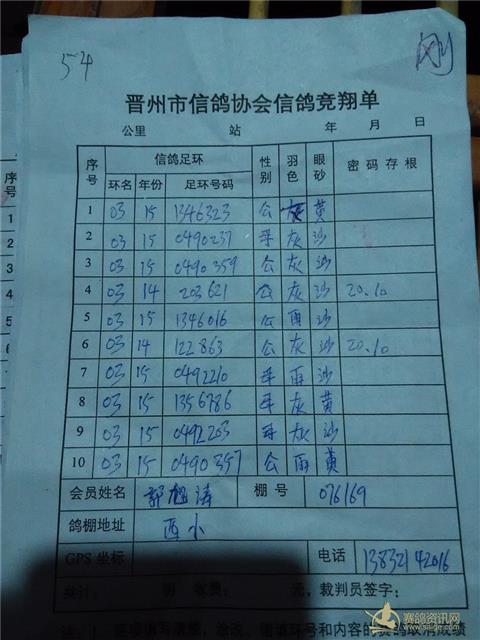 54
刚
晋州市信鸽协会信鸽竞翔单
公里 站 年 月 日
序号 信鸽足环 性别 羽色 眼砂 密码存根
环名 年份 足环号码
1 03 15 1346323 公 灰 黄
2 03 15 0490237 母 灰 沙
3 03 15 0490359 公 灰 沙
4 03 14 203621 公 灰 沙 20.10
5 03 15 1346016 公 雨 沙
6 03 14 122863 公 灰 沙 20.10
7 03 15 0492210 母 雨 沙
8 03 15 1356786 母 灰 黄
9 03 15 0492203 母 灰 沙
10 03 15 0490357 公 雨 黄
会员姓名 郭旭涛 棚号 076169
鸽棚地址 西小
GPS 坐标 电话 13832142016
共计: 羽 收费: 元, 裁判员签字:
序号
1
2
3
4
5
6
赛鸽资讯网
www.saige.com